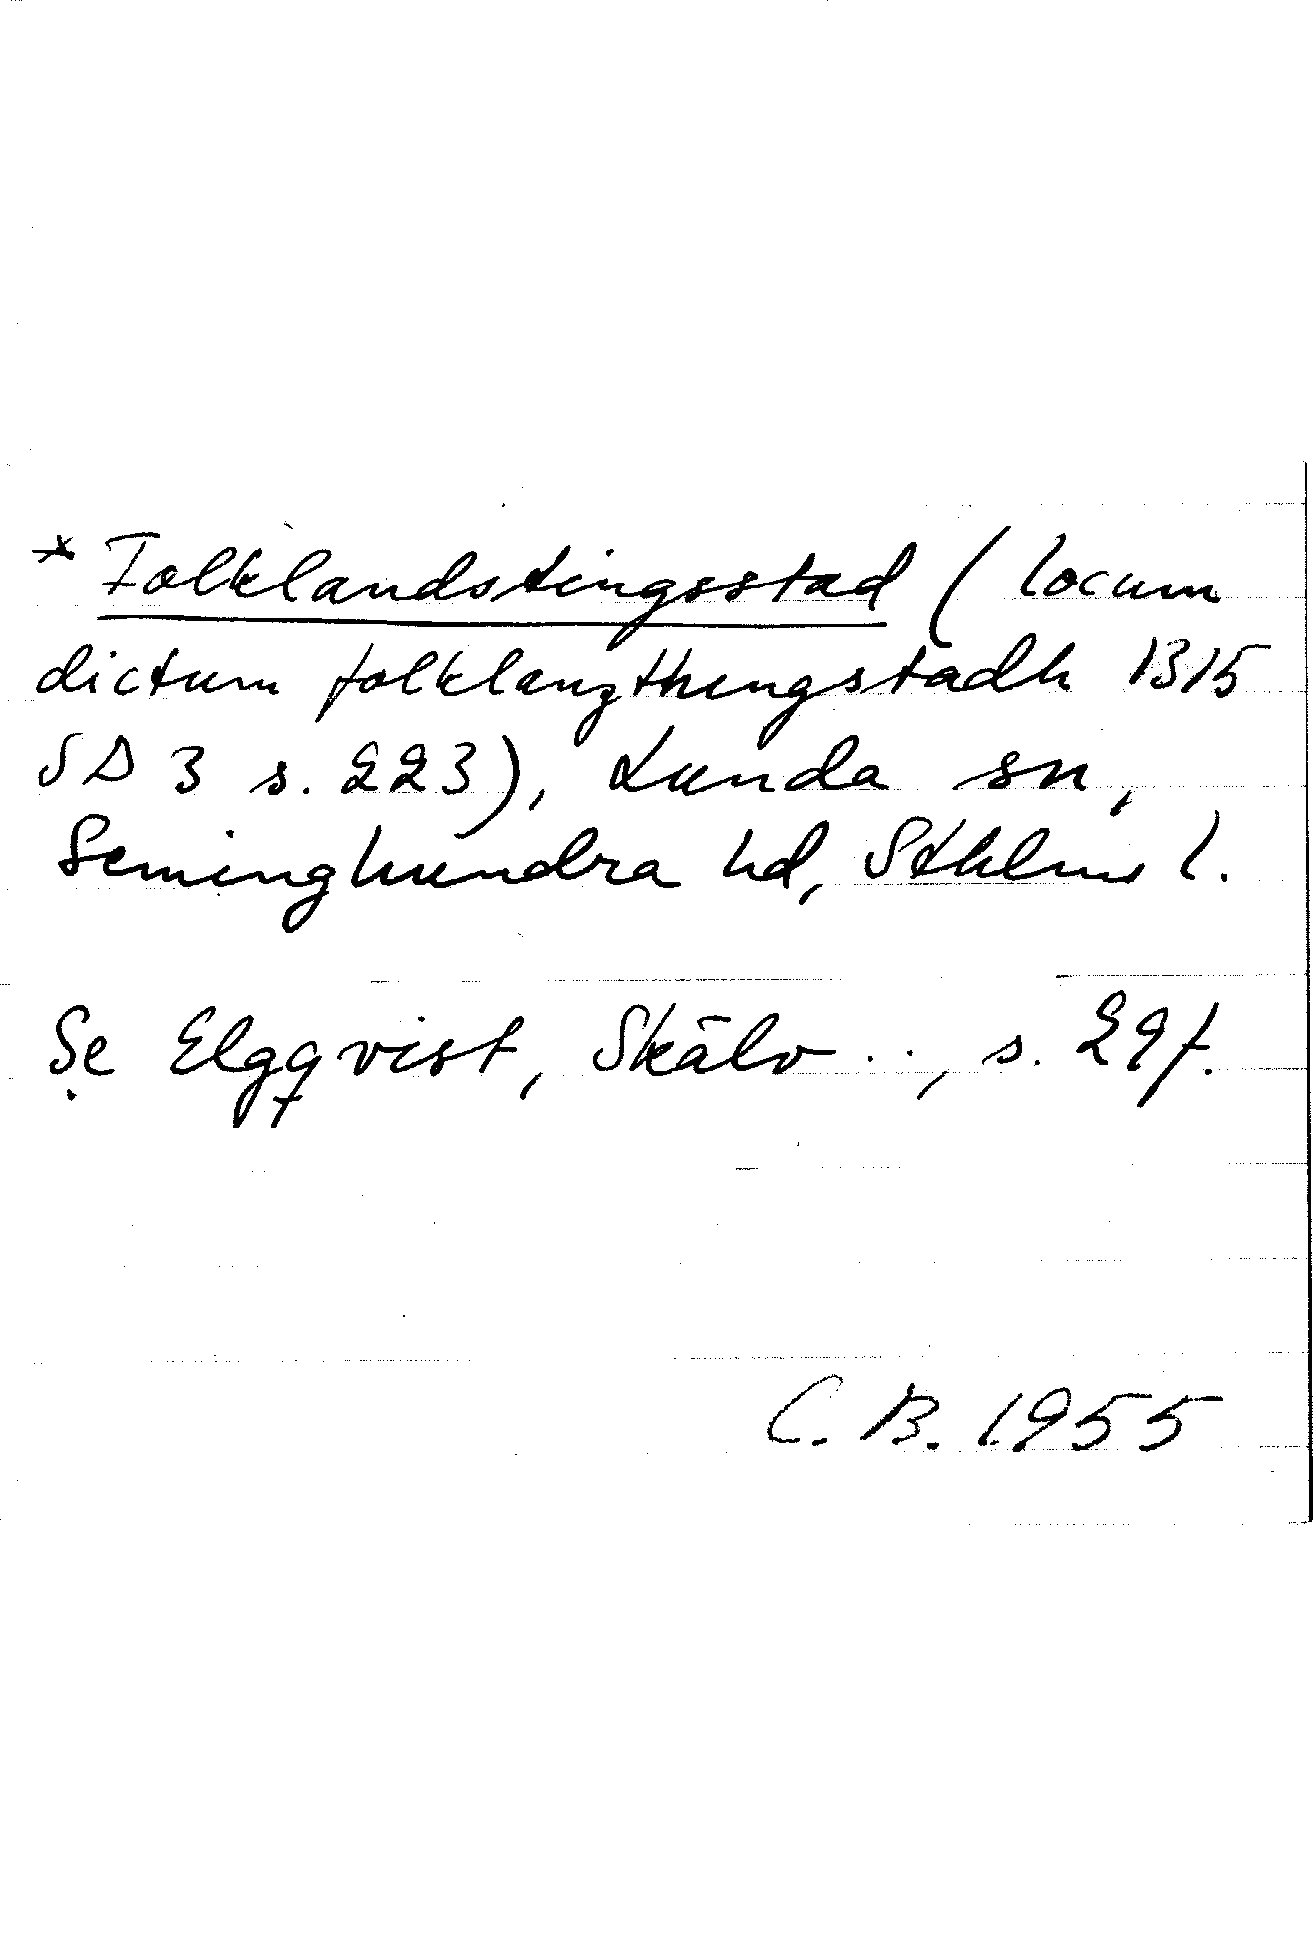 * Folklandstingsstad (locum
dictum folklanzthingstadh 1315
SD 3 s. 223), Lunda sn,
Seminghundra hd, Sthlms l.
Se Elgqvist, Skälv . . , s. 29f.
C. B. 1955